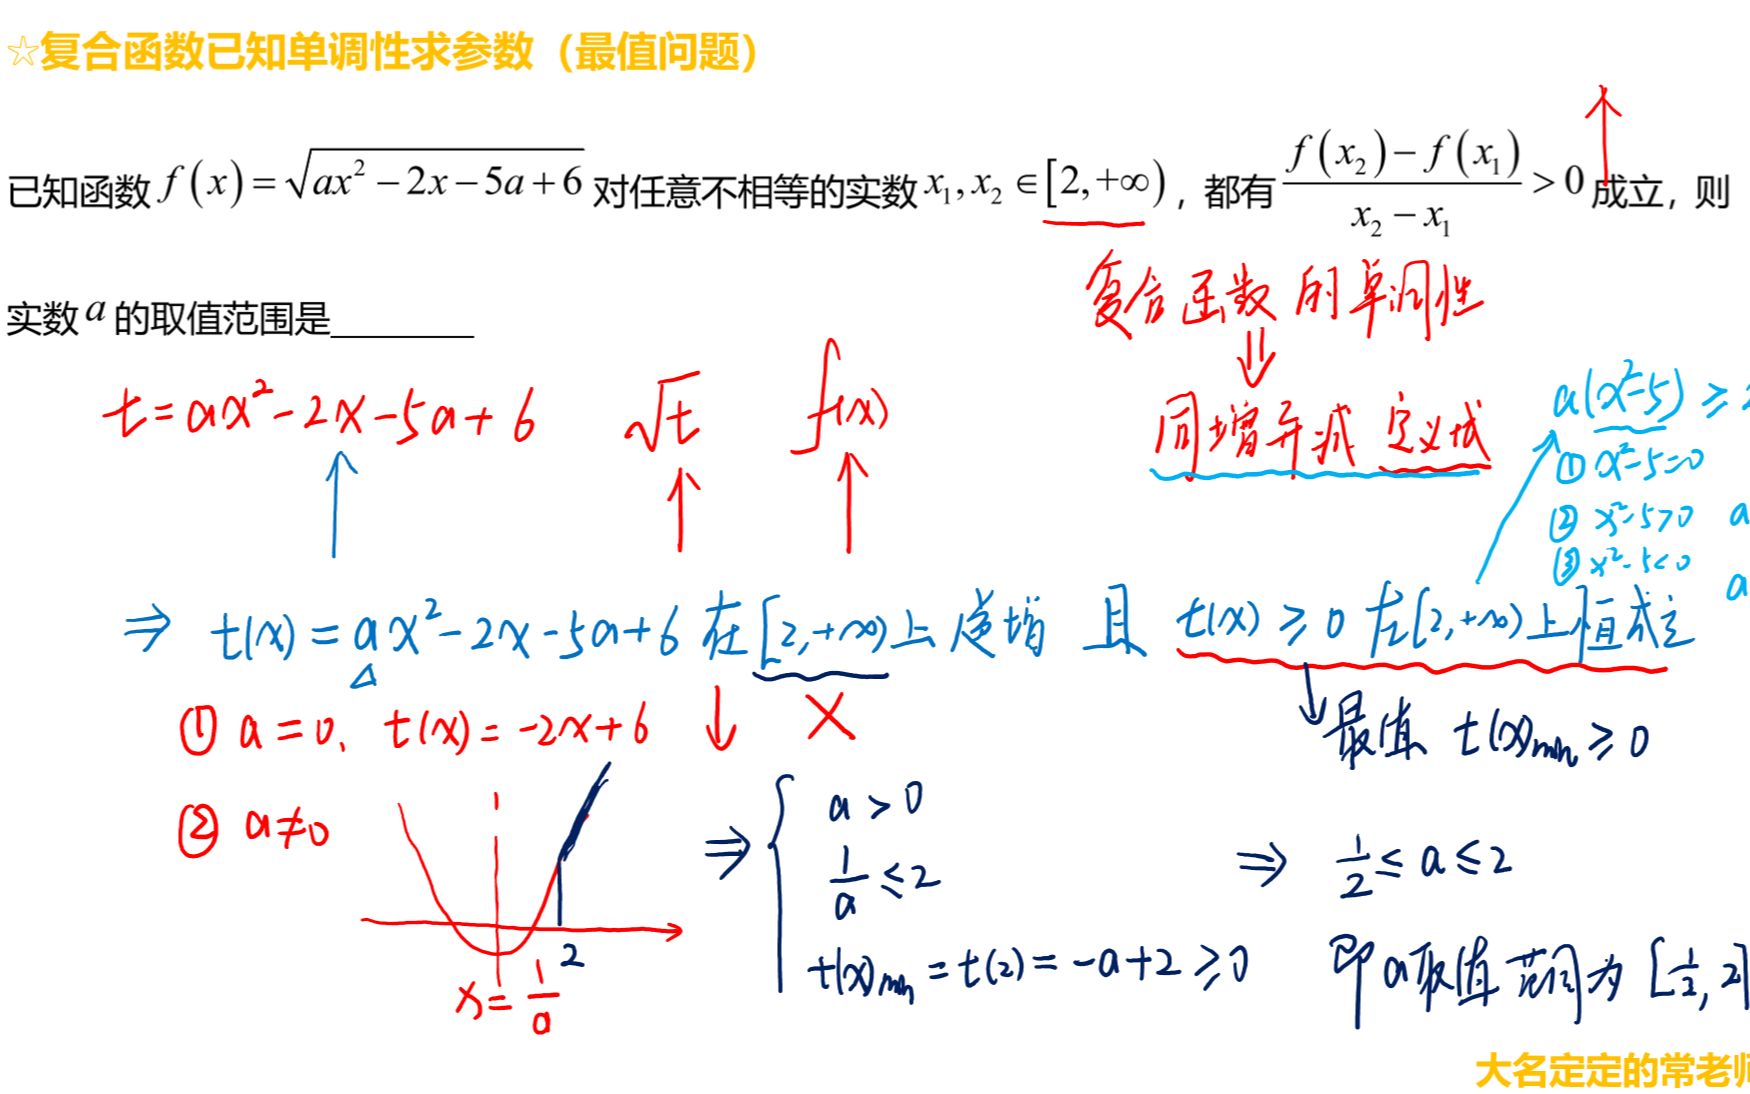 ☆复合函数已知单调性求参数（最值问题）
已知函数 f(x)=√(ax²-2x-5a+6) 对任意不相等的实数 x₁,x₂∈[2,+∞)，都有 (f(x₂)-f(x₁))/(x₂-x₁)>0 成立，则
实数 a 的取值范围是________
复合函数的单调性
⇓
t=ax²-2x-5a+6 √t f(x)
同增异减 定义域
a(x²-5)≥
① x²-5=0
② x²-5>0 a
③ x²-5<0 a
⇒ t(x)=ax²-2x-5a+6 在[2,+∞)上递增 且 t(x)≥0 在[2,+∞)上恒成立
① a=0、t(x)=-2x+6 ↓ ×
最值 t(x)min≥0
② a≠0
x=1/a
2
⇒ { a>0
1/a≤2
t(x)min=t(2)=-a+2≥0
⇒ 1/2≤a≤2
即a取值范围为[1/2,2]
大名定定的常老师